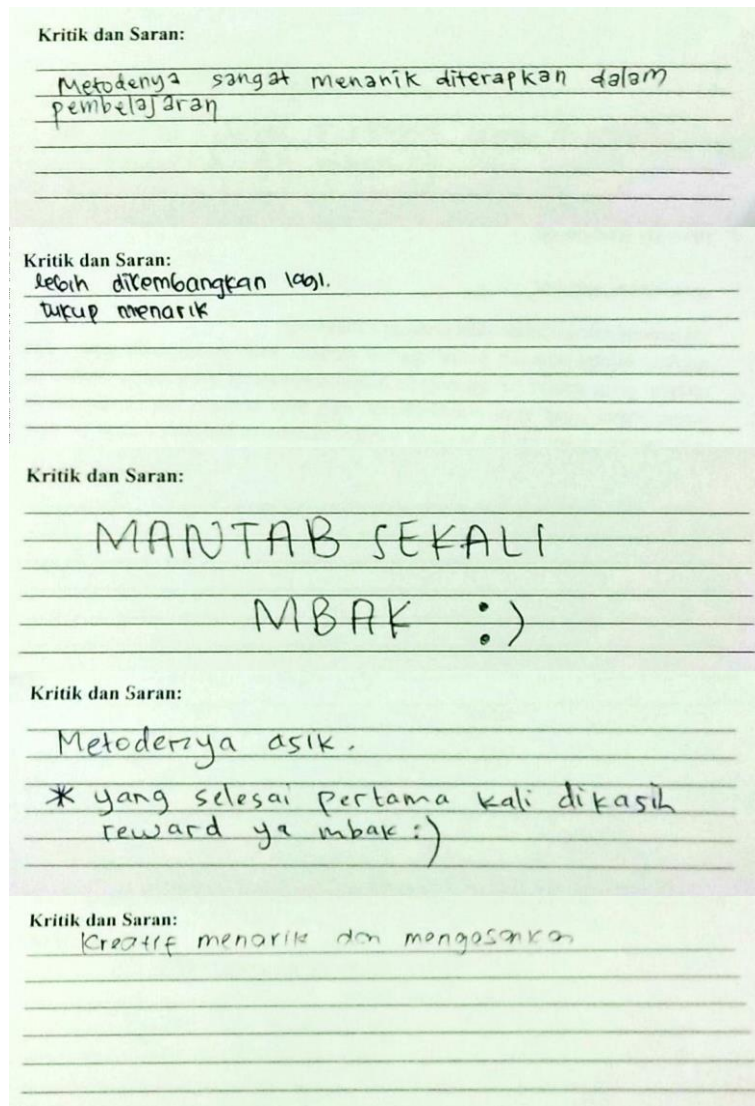 Kritik dan Saran:
Metodenya sangat menarik diterapkan dalam
pembelajaran
Kritik dan Saran:
lebih dikembangkan lagi.
cukup menarik
Kritik dan Saran:
MANTAB SEKALI
MBAK :)
Kritik dan Saran:
Metodenya asik.
* yang selesai pertama kali dikasih
reward ya mbak :)
Kritik dan Saran:
Kreatif menarik dan mengasankan